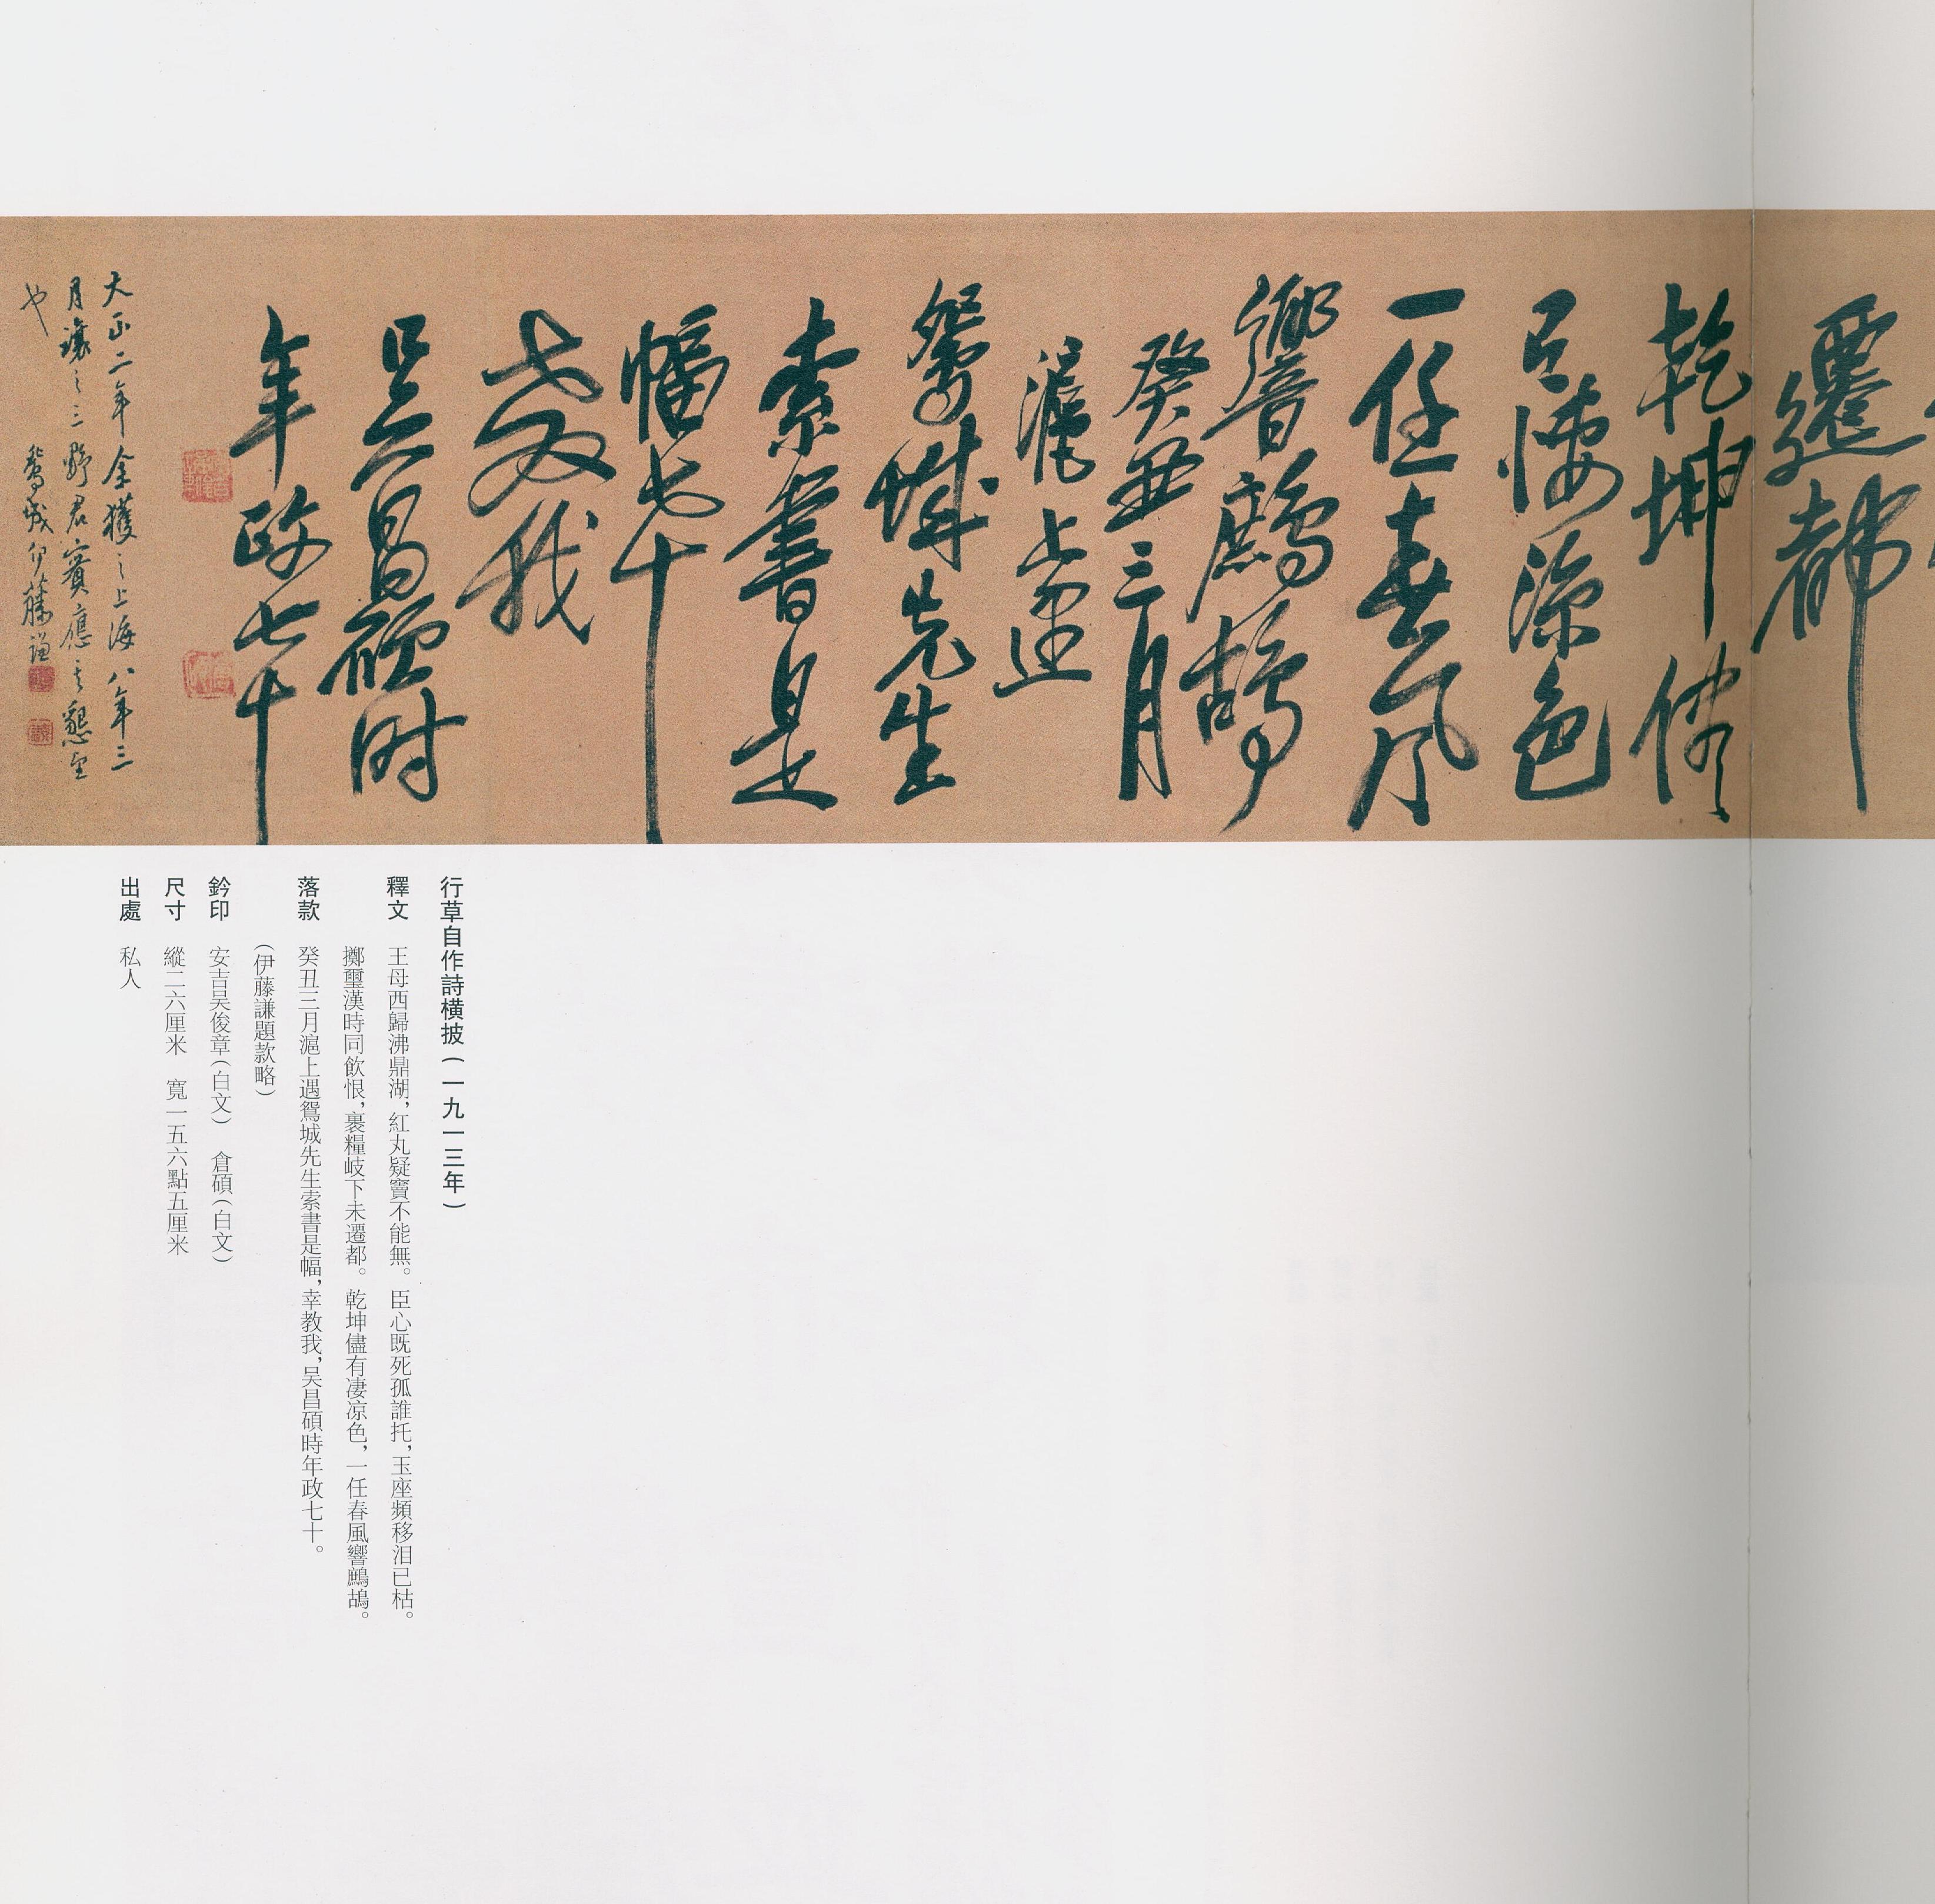 遷都
乾坤儘
有悽涼色
一任春風
響鷓鴣
癸丑三月
滬上遇
鴛城先生
索書是
幅
教我
吳昌碩時
年政七十
大正二年余獲之上海八年三
月讓之三野君賓應其懇望
也
鴛城伊藤謙
行草自作詩橫披(一九一三年)
釋文 王母西歸沸鼎湖,紅丸疑竇不能無。臣心既死孤誰托,玉座頻移泪已枯。
擲璽漢時同飲恨,裹糧岐下未遷都。乾坤儘有凄凉色,一任春風響鷓鴣。
落款 癸丑三月滬上遇鴛城先生索書是幅,幸教我,吴昌碩時年政七十。
(伊藤謙題款略)
鈐印 安吉吴俊章(白文) 倉碩(白文)
尺寸 縱二六厘米 寬一五六點五厘米
出處 私人